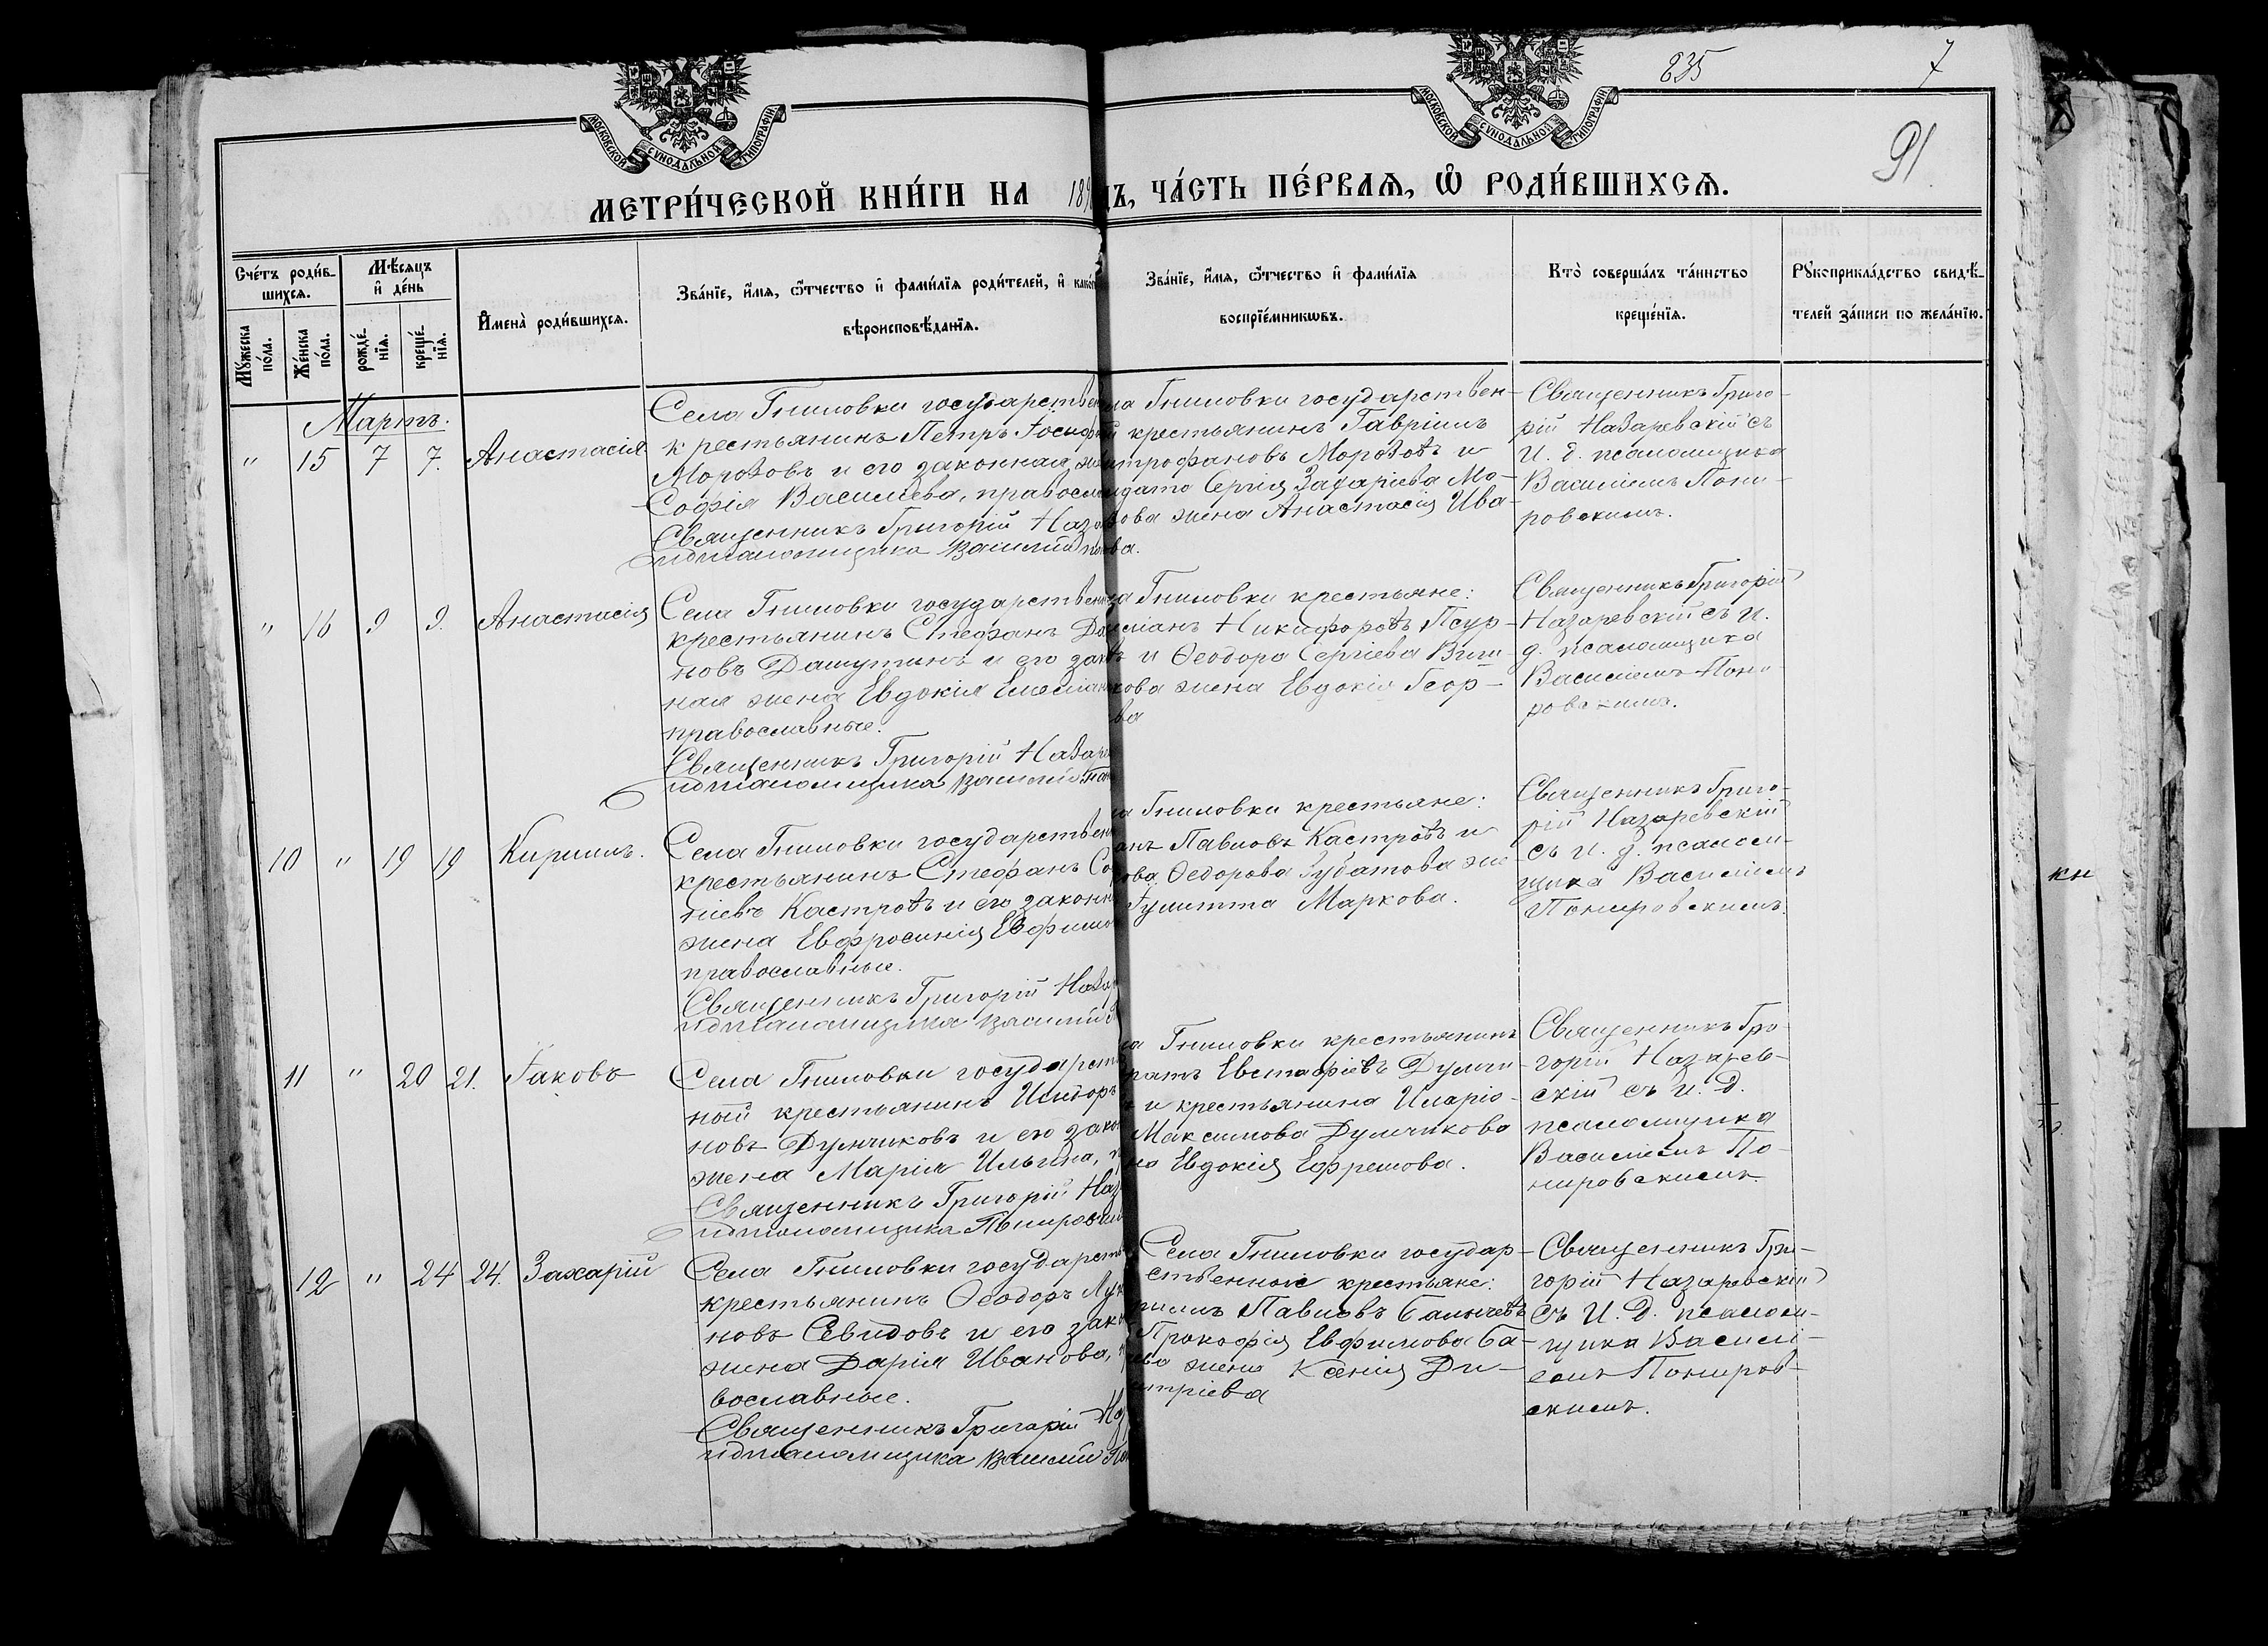 835
7
91
МОСКОВСКОЙ СѴНОДАЛЬНОЙ ТИПОГРАФІИ
МОСКОВСКОЙ СѴНОДАЛЬНОЙ ТИПОГРАФІИ
МЕТРИ́ЧЕСКОЙ КНИ́ГИ НА 189
Ъ, ЧА́СТЬ ПЕ́РВАѦ, Ѽ РОДИ́ВШИХСѦ.
Сче́тъ роди́в-
шихсѧ.
Мѣ́сѧцъ
и҆ де́нь
Мꙋ́жеска
по́ла.
Же́нска
по́ла.
рожде́-
нїѧ.
креще́-
нїѧ.
И҆мена̀ роди́вшихсѧ.
Зва́нїе, и҆́мѧ, ѻ҆́тчество и҆ фами́лїѧ роди́телей, и҆ како
вѣроисповѣ́данїѧ.
Зва́нїе, и҆́мѧ, ѻ҆́тчество и҆ фами́лїѧ
воспрїе́мникѡвъ.
Кто̀ соверша́лъ та́инство
креще́нїѧ.
Рꙋкоприкла́дство свидѣ́-
телей за́писи по жела́нїю.
Мартъ.
" 15 7 7. Анастасія
Села Гниловки государствен
крестьянинъ Петръ Іосиф
Морозовъ и его законная
Софія Васильева, правосл
Священникъ Григорій Наза
идпсаломщика Василий
ла Гниловки государствен-
й крестьянинъ Гавріилъ
итрофановъ Морозовъ и
лдата Сергія Захаріева Мо-
зова жена Анастасія Ива-
нова.
Священникъ Григо-
рій Назаревскій съ
И. д. псаломщика
Василіемъ Пони-
ровскимъ.
" 16 9 9. Анастасія
Села Гниловки государственн
крестьянинъ Стефанъ
новъ Дашутинъ и его зако
ная жена Евдокія Емеліан
православные.
Священникъ Григорій Назаре
идпсаломщика Василий Пон
ла Гниловки крестьяне:
иліанъ Никифоровъ
и Ѳеодора Сергіева
кова жена Евдокія Геор-
ва
Священникъ Григорій
Назаревскій съ И.
д. псаломщика
Василіемъ Пони-
ровскимъ.
10 " 19 19 Кириллъ.
Села Гниловки государствен
крестьянинъ Стефанъ Со
ніевъ Кастровъ и его законн
жена Евфросинія Евфимо
православные.
Священникъ Григорій Назар
идпсаломщика Василий
ла Гниловки крестьяне:
анъ Павловъ Кастровъ и
рова Ѳедорова Губатова же
Гулитта Маркова.
Священникъ Григо-
рій Назаревскій
съ И. д. псалом-
щика Василіемъ
Понировскимъ.
11 " 20 21. Іаковъ
Села Гниловки государст
ный крестьянинъ Исидоръ
новъ Думчиковъ и его зако
жена Марія Ильина,
Священникъ Григорій Наз
идпсаломщика Понировский
ла Гниловки крестьянинъ
Евстафіевъ Думчи-
и крестьянина Иларіо-
Максимова Думчикова
на Евдокія Ефремова.
Священникъ Гри-
горій Назарев-
скій съ И. Д.
псаломщика
Василіемъ По-
нировскимъ.
12 " 24 24. Захарій
Села Гниловки государст
крестьянинъ Ѳеодоръ Лук
новъ Севидовъ и его зако
жена Дарія Иванова,
вославные.
Священникъ Григорій Наз
идпсаломщика Василий Пон
Села Гниловки государ-
ственные крестьяне:
риллъ Павловъ Балычевъ
Прокофія Евфимова Ба-
ева жена Ксенія Ди-
итріева
Священникъ Гри-
горій Назаревскій
съ И. Д. псалом-
щика Василі-
емъ Пониров-
скимъ.
кн